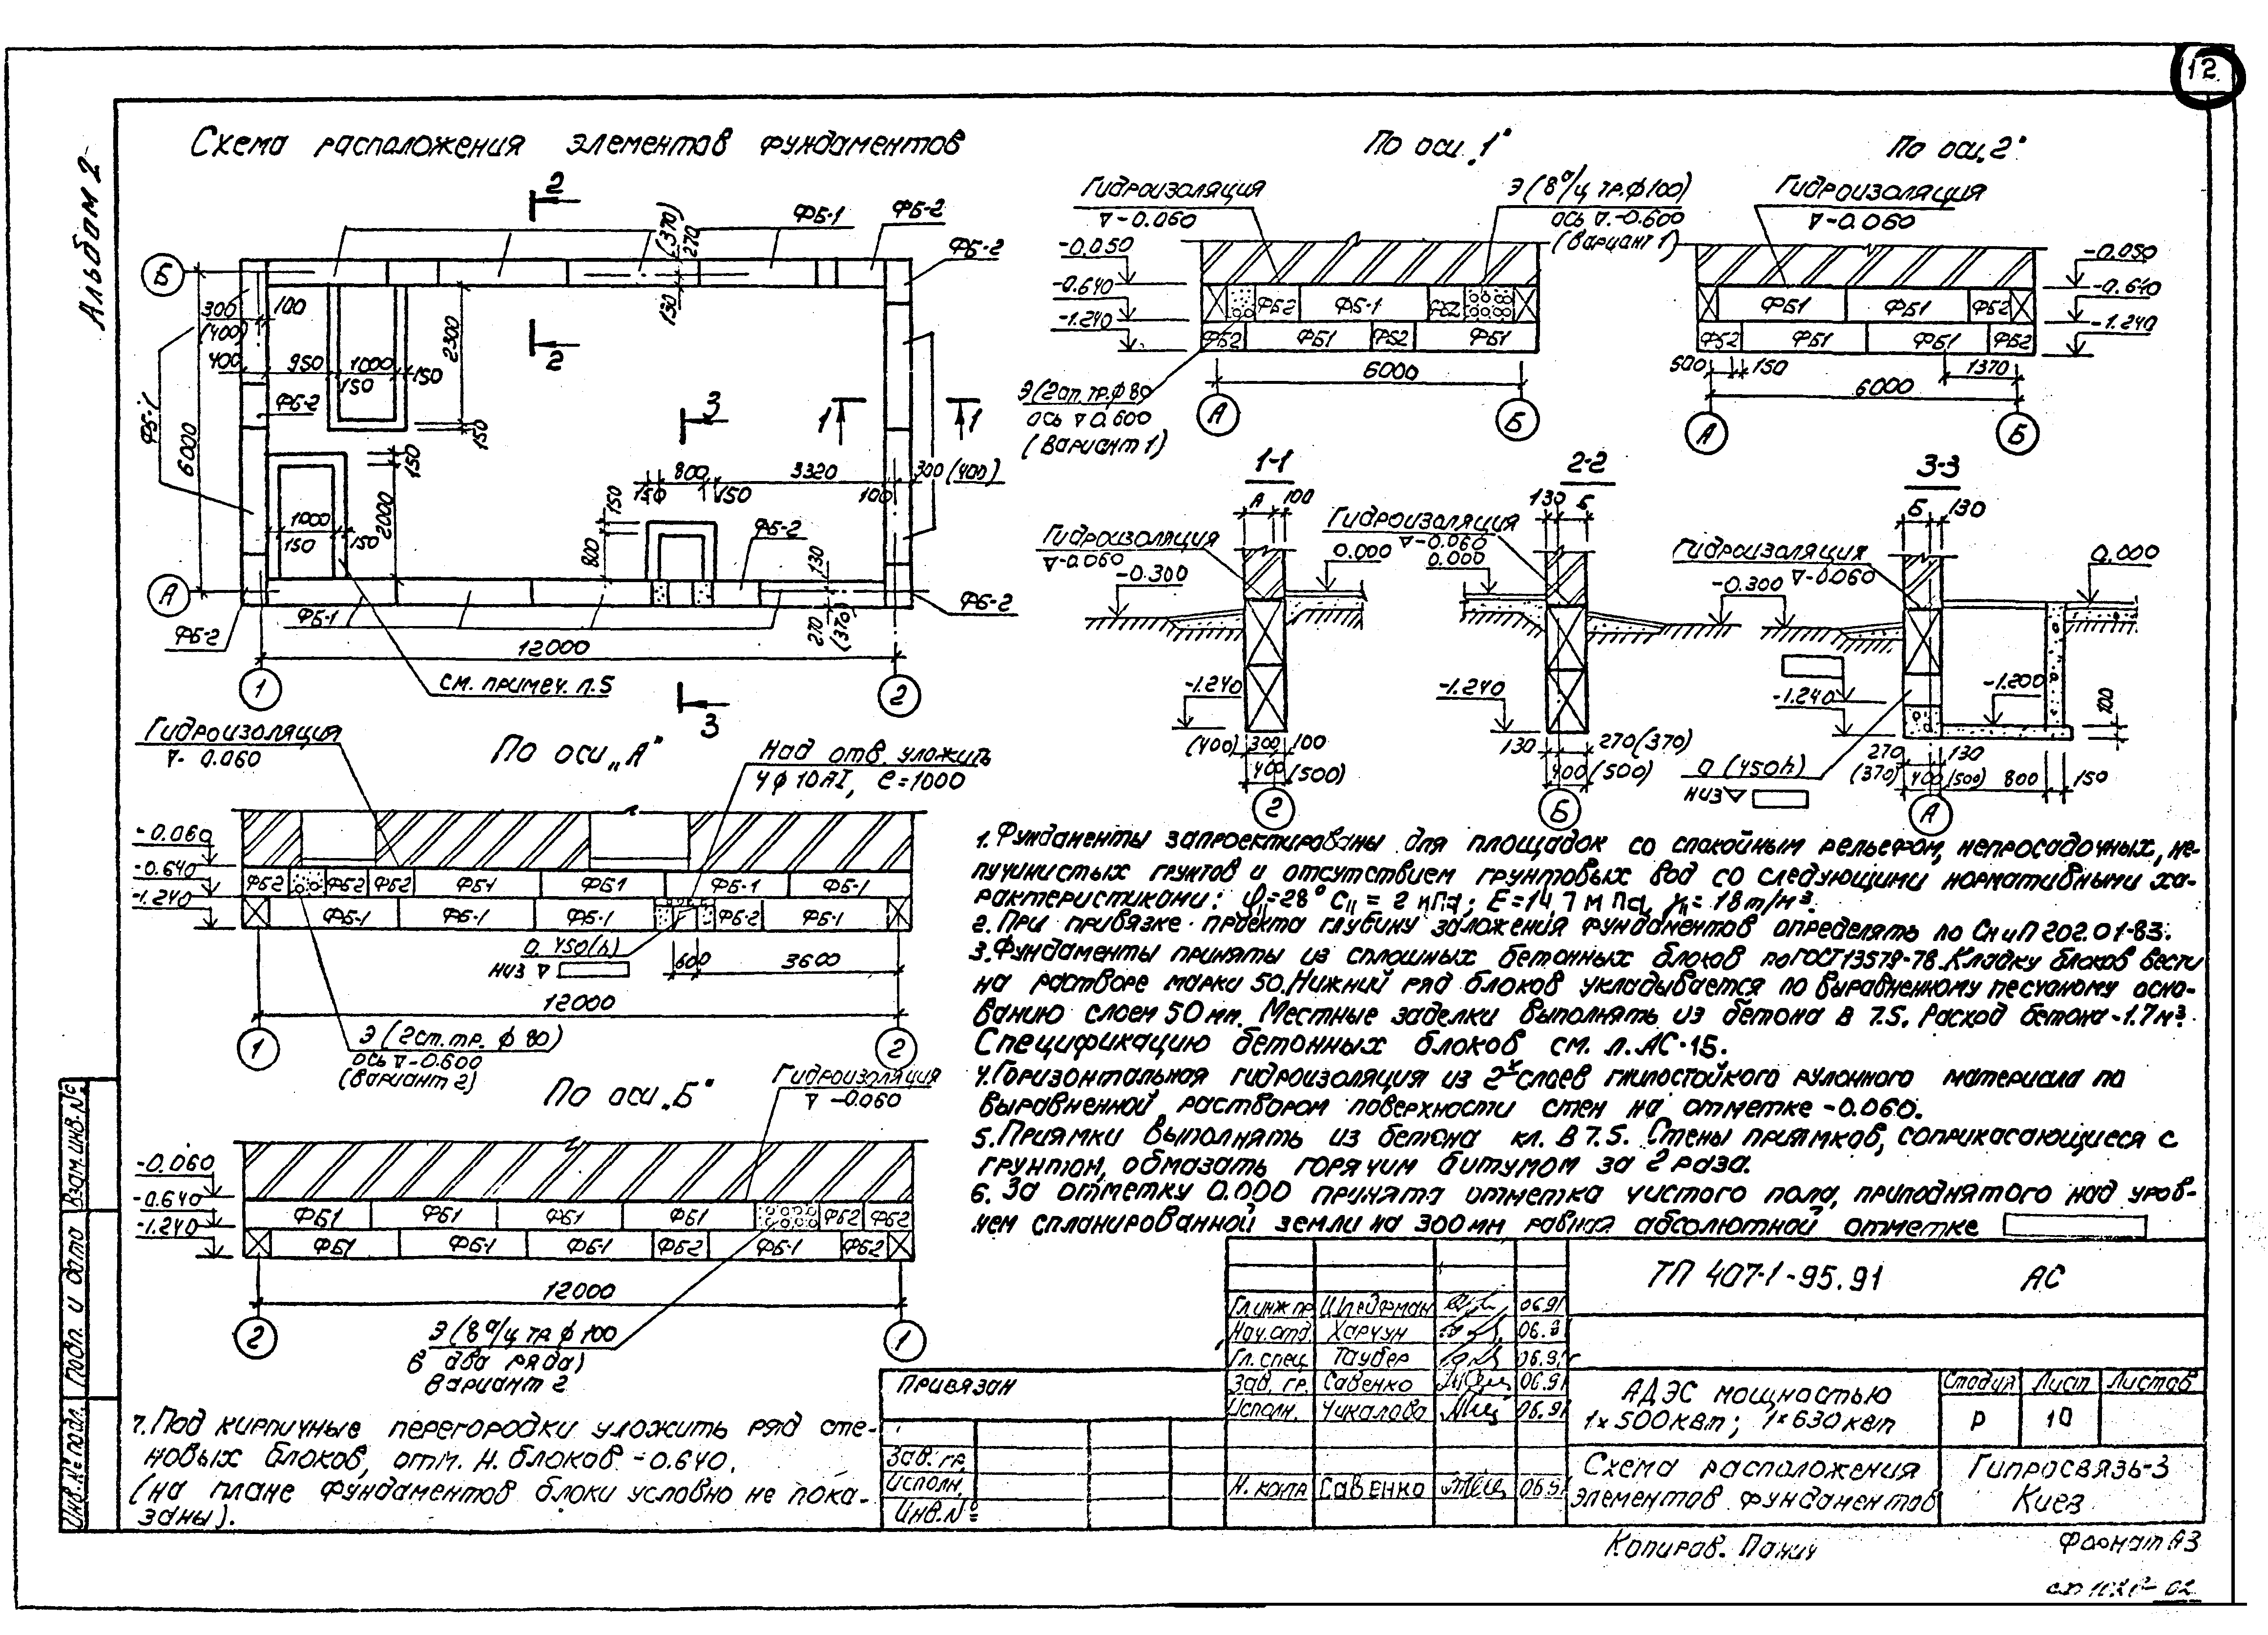 12
Альбом 2
Схема расположения элементов фундаментов
2
2
ФБ-1
ФБ-2
ФБ-2
(370)
270
130
Б
300
(400)
100
400
950
1000
150
150
2300
150
ФБ-2
ФБ-1
6000
3
1
1
150
2000
1000
150
150
800
3320
300 (400)
150
150
100
150
800
ФБ-2
130
270
(370)
А
ФБ-2
ФБ-1
ФБ-2
12000
1
2
см. примеч. п.5
3
По оси „1"
Гидроизоляция
-0.060
Э (8 а/ц тр. ф 100)
ось -0.600
(вариант 1)
-0.050
-0.640
-1.240
ФБ2 ФБ-1 ФБ2
ФБ2 ФБ1 ФБ2 ФБ1
6000
Э (2 ст. тр. ф 80
ось 0.600
(вариант 1)
А
Б
По оси „2"
Гидроизоляция
-0.060
-0.050
-0.640
-1.240
ФБ1 ФБ1 ФБ2
ФБ2 ФБ1 ФБ1 ФБ2
150
1370
6000
А
Б
1-1
А 100
Гидроизоляция
-0.060
0.000
-0.300
-1.240
(400) 300 100
400 (500)
2
2-2
130 Б
Гидроизоляция
-0.060
0.000
-0.300
-1.240
130
270(370)
400 (500)
Б
3-3
Б 130
Гидроизоляция
-0.060
0.000
-1.240
-1.200
100
270
(370)
130
400 (500)
800
150
О (450h)
низ
А
По оси „А"
Гидроизоляция
- 0.060
Над отв. уложить
4 ф 10 АI, e=1000
-0.060
-0.640
-1.240
ФБ2 ФБ2 ФБ2 ФБ1 ФБ1 ФБ-1 ФБ-1
ФБ-1 ФБ-1 ФБ-1 ФБ-2 ФБ-1
О. 450(h)
низ
600
3600
12000
1
2
Э (2ст. тр. ф 80)
ось -0.600
(вариант 2)
По оси „Б"
Гидроизоляция
-0.060
-0.060
-0.640
-1.240
ФБ1 ФБ1 ФБ1 ФБ1 ФБ2 ФБ2
ФБ1 ФБ-1 ФБ-1 ФБ2 ФБ-1 ФБ2
12000
2
1
Э (8 а/ц тр ф 100
в два ряда)
вариант 2
1. Фундаменты запроектированы для площадок со спокойным рельефом, непросадочных, не-
пучинистых грунтов и отсутствием грунтовых вод со следующими нормативными ха-
рактеристиками: φII=28° CII = 2 кПа; E=14,7 мПа, γII= 18т/м³.
2. При привязке проекта глубину заложения фундаментов определять по СНиП 2.02.01-83.
3. Фундаменты приняты из сплошных бетонных блоков по ГОСТ 13579-78. Кладку блоков вести
на растворе марки 50. Нижний ряд блоков укладывается по выравненному песчаному осно-
ванию слоем 50 мм. Местные заделки выполнять из бетона В 7.5. Расход бетона - 1.7м³.
Спецификацию бетонных блоков см. л. АС-15.
4. Горизонтальная гидроизоляция из 2х слоев гнилостойкого рулонного материала по
выравненной раствором поверхности стен на отметке -0.060.
5. Приямки выполнять из бетона кл. В 7.5. Стены приямков, соприкасающиеся с
грунтом, обмазать горячим битумом за 2 раза.
6. За отметку 0.000 принята отметка чистого пола, приподнятого над уров-
нем спланированной земли на 300 мм равная абсолютной отметке
7. Под кирпичные перегородки уложить ряд сте-
новых блоков, отм. Н. блоков -0.640.
(на плане фундаментов блоки условно не пока-
заны).
ТП 407-1-95.91 АС
Гл.инж.пр. Шлейфман 06.91
Нач.отд. Харчун 06.91
Гл. спец. Таубер 06.91
Зав. гр. Савенко 06.91
Исполн. Чикалова 06.91
Н. контр Савенко 06.91
АДЭС мощностью
1×500квт; 1×630квт
Стадия Лист Листов
Р 10
Схема расположения
элементов фундаментов
Гипросвязь-3
Киев
Привязан
Зав. гр.
Исполн.
Инв. №
Взам. инв. №
Подп. и дата
Инв. № подл.
Копиров. Панич
Формат А3
02